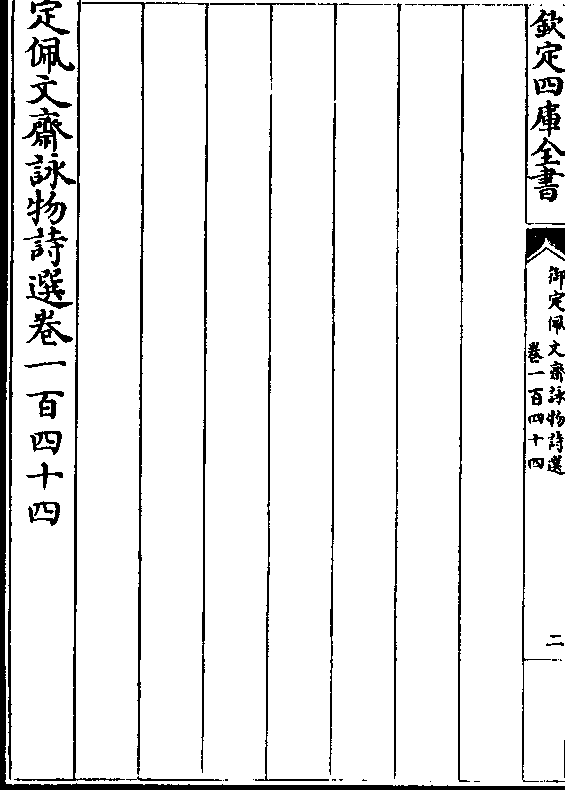 欽定四庫全書
御定佩文齋詠物詩選
卷一百四十四
二
定佩文齋詠物詩選卷一百四十四